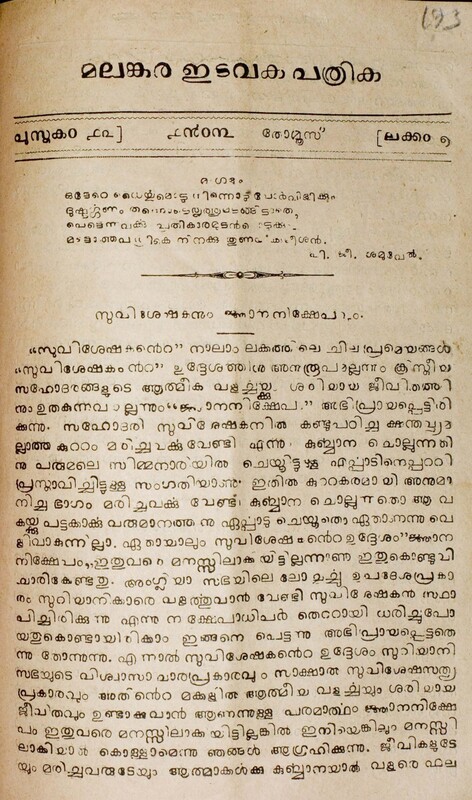 193
മലങ്കര ഇടവക പത്രിക
പുസ്തകം ൧൨] ൧൯൦൩ തോമ്മൂസ് [ലക്കം ൧
ഒരേറെ
തന്നെ
പെട്ടെന്നവക്കു പ്രതികാരമുടൻ
നിനക്കു തുണ
പി. ജീ. ശമുവേൽ.
സുവിശേഷകനും ജ്ഞാനനിക്ഷേപവും.
“സുവിശേഷകന്റെ” നാലാം ലക്കത്തിലെ ചില പ്രമെയങ്ങൾ
“സുവിശേഷകന്റ” ഉദ്ദേശത്തിന്നു അനുരൂപമല്ലന്നും ക്രിസ്തീയ
സഹോദരങ്ങളുടെ ആത്മീക വളൎച്ചയ്ക്കും ശരിയായ ജീവിതത്തി
ന്നും ഉതകുന്നവയല്ലന്നും “ജ്ഞാനനിക്ഷേപ.” അഭിപ്രായപ്പെട്ടിരി
ക്കുന്നു. സഹോദരി സുവിശേഷകനിൽ കണ്ടുപഠിച്ച ക്ഷന്തവ്യമ
ല്ലാത്ത കുററം മരിച്ചവൎക്കുവേണ്ടി എന്തു കുൎബ്ബാന ചൊല്ലുന്നതി
ന്നു പരുമല സിമ്മനാരിയിൽ ചെയ്തിട്ടുള്ള ഏൎപ്പാടിനെപ്പററി
പ്രസ്താവിച്ചിട്ടുള്ള സംഗതിയാണു. ഇതിൽ കുററകരമായി അനുമാ
നിച്ച ഭാഗം മരിച്ചവൎക്കു വേണ്ടി കുൎബ്ബാന ചൊല്ലുന്നതൊ ആ വ
കയ്ക്കു പട്ടക്കാൎക്കു വരുമാനത്തിന്നു ഏൎപ്പാടു ചെയ്തതൊ ഏതാണന്നു വെ
ളിവാകുന്നില്ലാ. ഏതായാലും സുവിശേഷകന്റെ ഉദ്ദേശം “ജ്ഞാന
നിക്ഷേപം,, ഇതുവരെ മനസ്സിലാക്കിയിട്ടില്ലന്നാണു ഇതുകൊണ്ടു വി
ചാരിക്കേണ്ടതു. അംഗ്ലിയാ സഭയിലെ ലോ ചൎച്ചു ഉപദേശപ്രകാ
രം സുറിയാനിക്കാരെ വളൎത്തുവാൻ വേണ്ടി സുവിശേഷകൻ സ്ഥാ
പിച്ചിരിക്കുന്നു എന്നു നിക്ഷേപാധിപർ തെററായി ധരിച്ചുപോ
യതുകൊണ്ടായിരിക്കാം ഇങ്ങനെ പെട്ടന്നു അഭിപ്രായപ്പെട്ടതെ
ന്നു തോന്നുന്നു. എന്നാൽ സുവിശേഷകന്റെ ഉദ്ദേശം സുറിയാനി
സഭയുടെ വിശ്വാസാചാരപ്രകാരവും സാക്ഷാൽ സുവിശേഷസത്യ
പ്രകാരവും അതിന്റെ മക്കളിൽ ആത്മിയ വളൎച്ചയും ശരിയായ
ജീവിതവും ഉണ്ടാക്കുവാൻ ആണെന്നുള്ള പരമാൎത്ഥം ജ്ഞാനനിക്ഷേ
പം ഇതുവരെ മനസ്സിലാക്കിയിട്ടില്ലങ്കിൽ ഇനിയെങ്കിലും മനസ്സി
ലാക്കിയാൽ കൊള്ളാമെന്നു ഞങ്ങൾ ആഗ്രഹിക്കുന്നു. ജീവികളുടേ
യും മരിച്ചവരുടേയും ആത്മാക്കൾക്കു കുൎബ്ബാനയാൽ വളരെ ഫല